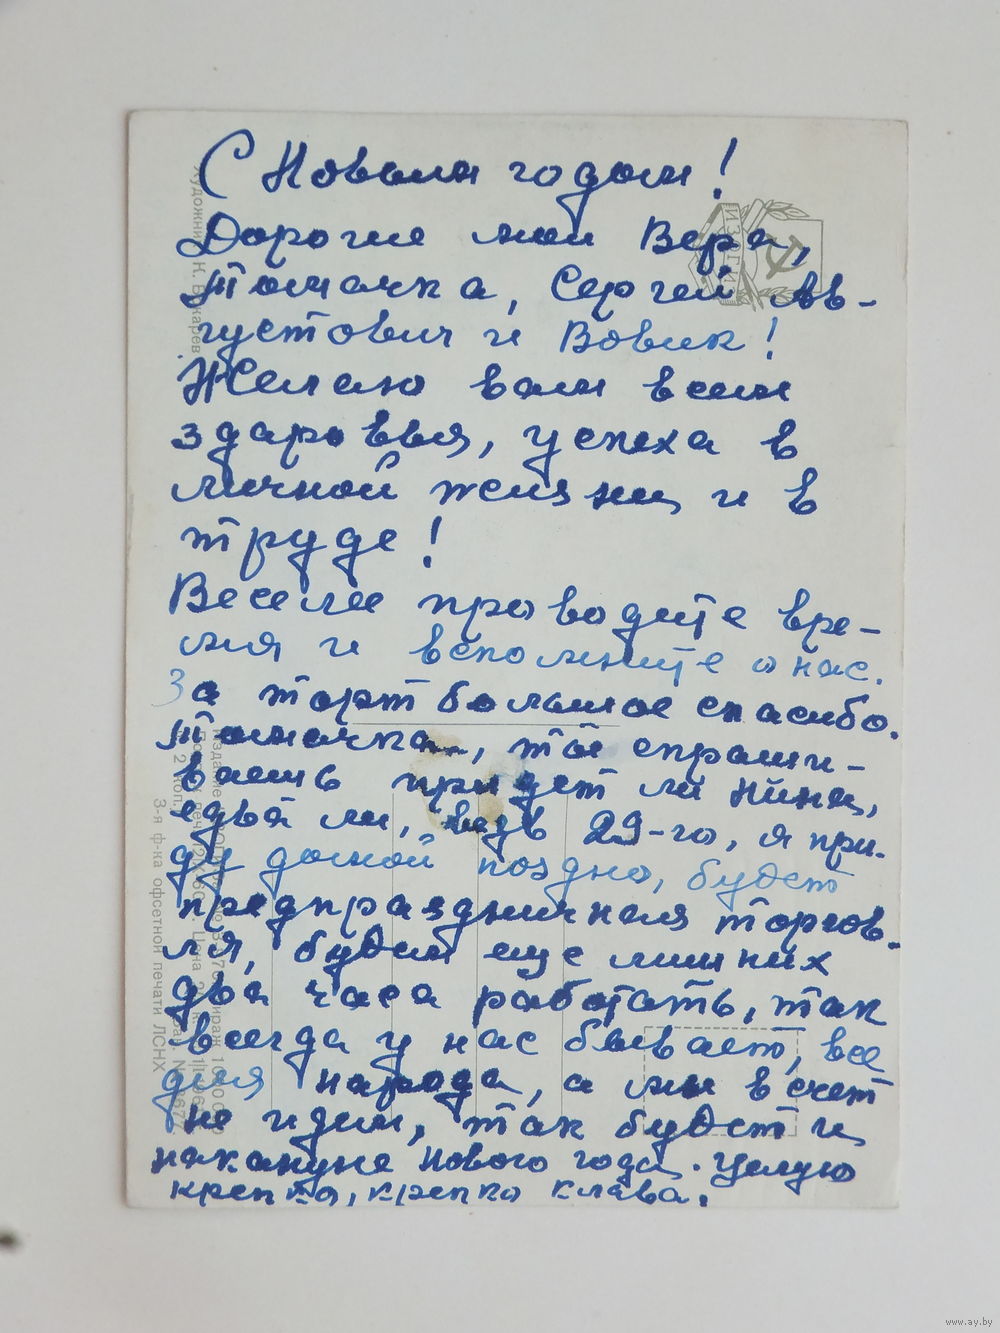 С Новым годом!
Дорогие мои Вера,
Томочка, Сергей Ав-
густович и Вовик!
Желаю вам всем
здаровья, успеха в
личной жизни и в
труде!
Веселее проводите вре-
мя и вспомните о нас.
За торт большое спасибо.
Томочка, ты спраши-
ваешь придет ли Нина,
едва ли, ведь 29-го, я при-
ду домой поздно, будет
предпраздничная торгов-
ля, будем еще лишних
два часа работать, так
всегда у нас бывает, все
для народа, а мы в счет
не идем, так будет и
накануне нового года. Целую
крепко, крепко Клава.
ИЗОГИЗ
Художник К. Бокарев
3-я ф-ка офсетной печати ЛСНХ
www.ay.by